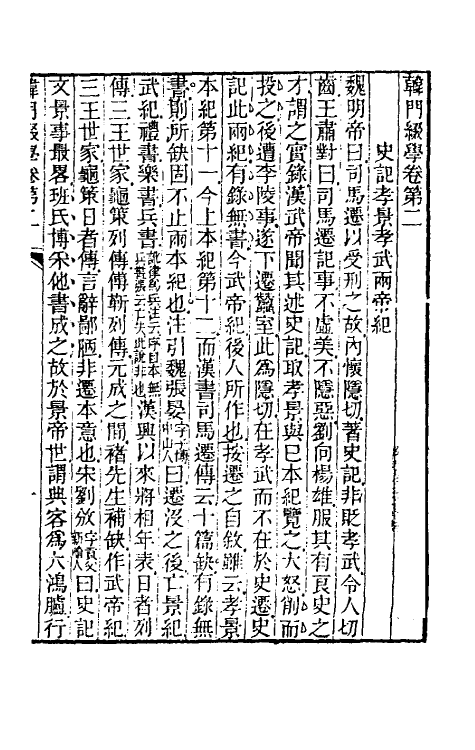 韓門綴學卷第二
史記孝景孝武兩帝紀
魏明帝曰司馬遷以受刑之故內懷隱切著史記非貶孝武令人切
齒王肅對曰司馬遷記事不虛美不隱惡劉向楊雄服其有良史之
才謂之實錄漢武帝聞其述史記取孝景與巳本紀覽之大怒削而
投之後遭李陵事遂下遷蠶室此為隱切在孝武而不在於史遷史
記此兩紀有錄無書今武帝紀後人所作也按遷之自敘雖云孝景
本紀第十一今上本紀第十二而漢書司馬遷傳云十篇缺有錄無
書則所缺固不止兩本紀也注引魏張晏字子博中山人曰遷沒之後亡景紀
武紀禮書樂書兵書漢興以來將相年表日者列
傳三王世家龜策列傳傅靳列傳元成之間褚先生補缺作武帝紀
三王世家龜策日者傳言辭鄙陋非遷本意也宋劉攽字貢父新喻人曰史記
文景事最畧班氏博采他書成之故於景帝世謂典客為大鴻臚行
韓門綴學卷第二 一